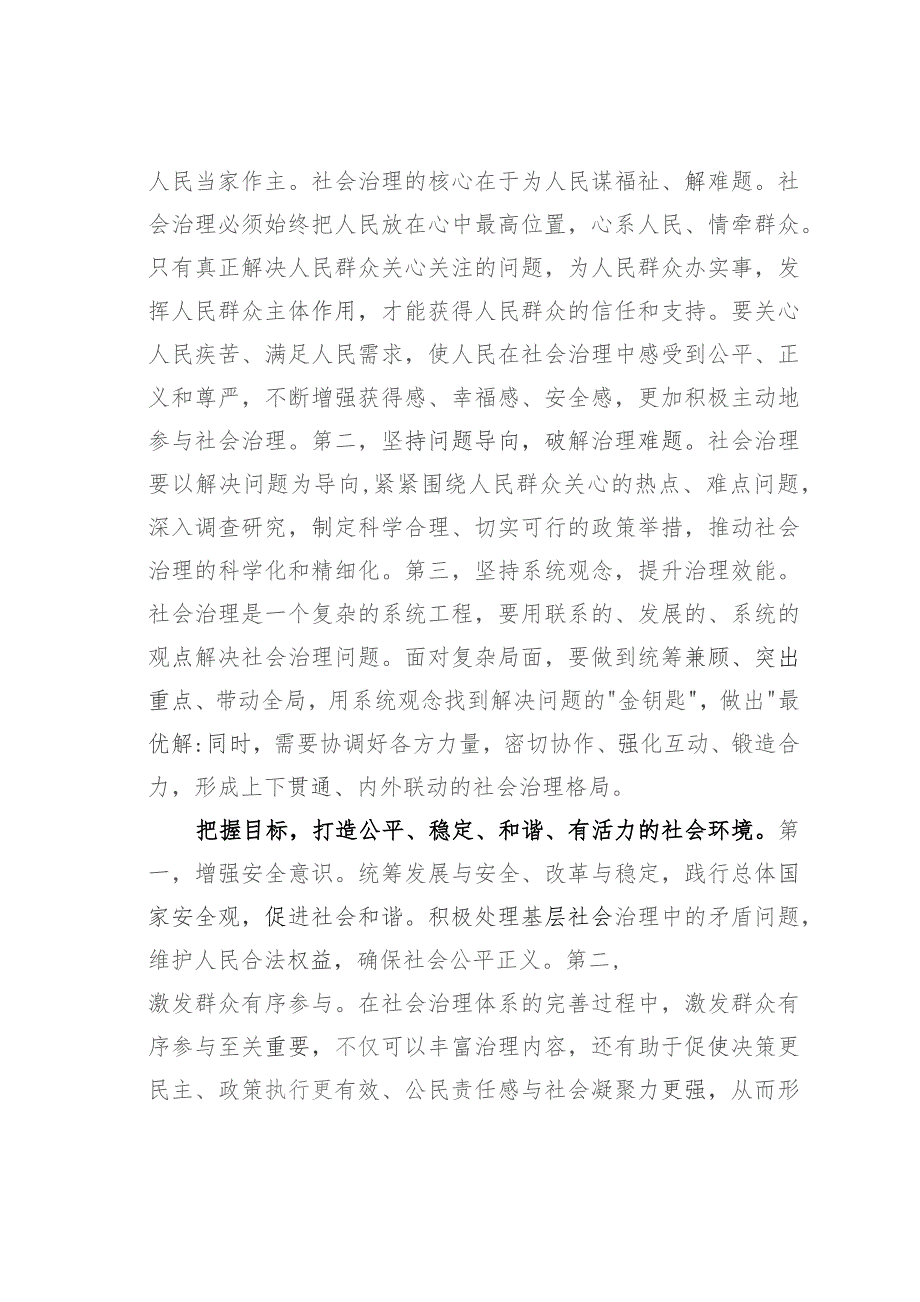 人民当家作主。社会治理的核心在于为人民谋福祉、解难题。社
会治理必须始终把人民放在心中最高位置，心系人民、情牵群众。
只有真正解决人民群众关心关注的问题，为人民群众办实事，发
挥人民群众主体作用，才能获得人民群众的信任和支持。要关心
人民疾苦、满足人民需求，使人民在社会治理中感受到公平、正
义和尊严，不断增强获得感、幸福感、安全感，更加积极主动地
参与社会治理。第二，坚持问题导向，破解治理难题。社会治理
要以解决问题为导向,紧紧围绕人民群众关心的热点、难点问题，
深入调查研究，制定科学合理、切实可行的政策举措，推动社会
治理的科学化和精细化。第三，坚持系统观念，提升治理效能。
社会治理是一个复杂的系统工程，要用联系的、发展的、系统的
观点解决社会治理问题。面对复杂局面，要做到统筹兼顾、突出
重点、带动全局，用系统观念找到解决问题的"金钥匙"，做出"最
优解:同时，需要协调好各方力量，密切协作、强化互动、锻造合
力，形成上下贯通、内外联动的社会治理格局。
把握目标，打造公平、稳定、和谐、有活力的社会环境。第
一，增强安全意识。统筹发展与安全、改革与稳定，践行总体国
家安全观，促进社会和谐。积极处理基层社会治理中的矛盾问题，
维护人民合法权益，确保社会公平正义。第二,
激发群众有序参与。在社会治理体系的完善过程中，激发群众有
序参与至关重要，不仅可以丰富治理内容，还有助于促使决策更
民主、政策执行更有效、公民责任感与社会凝聚力更强，从而形